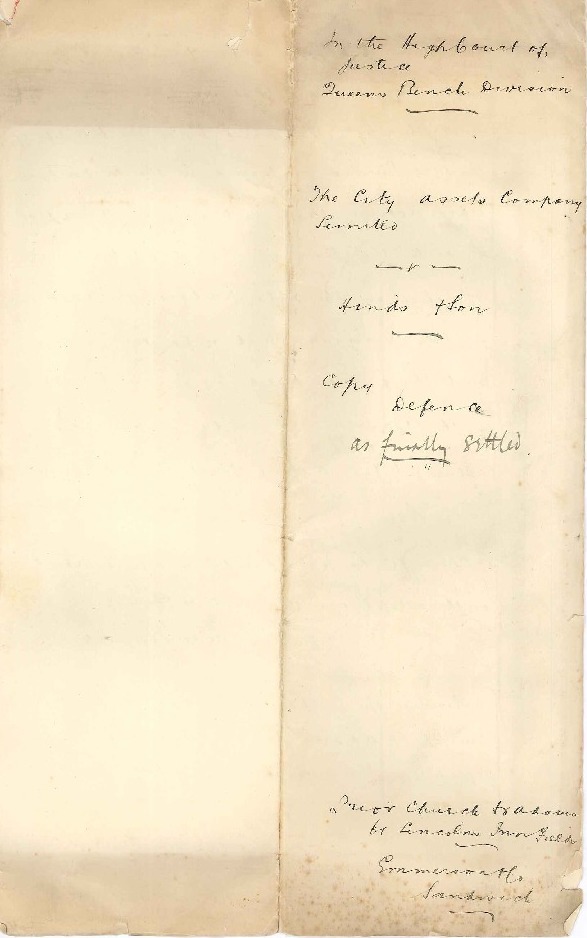 In the High Court of
Justice
Queens Bench Division
The City Assets Company
Limited
v
Hinds & Son
Copy
Defence
as finally settled.
Prior Church & Adams
61 Lincoln Inn Fields
Emmerson & Co
Sandwich